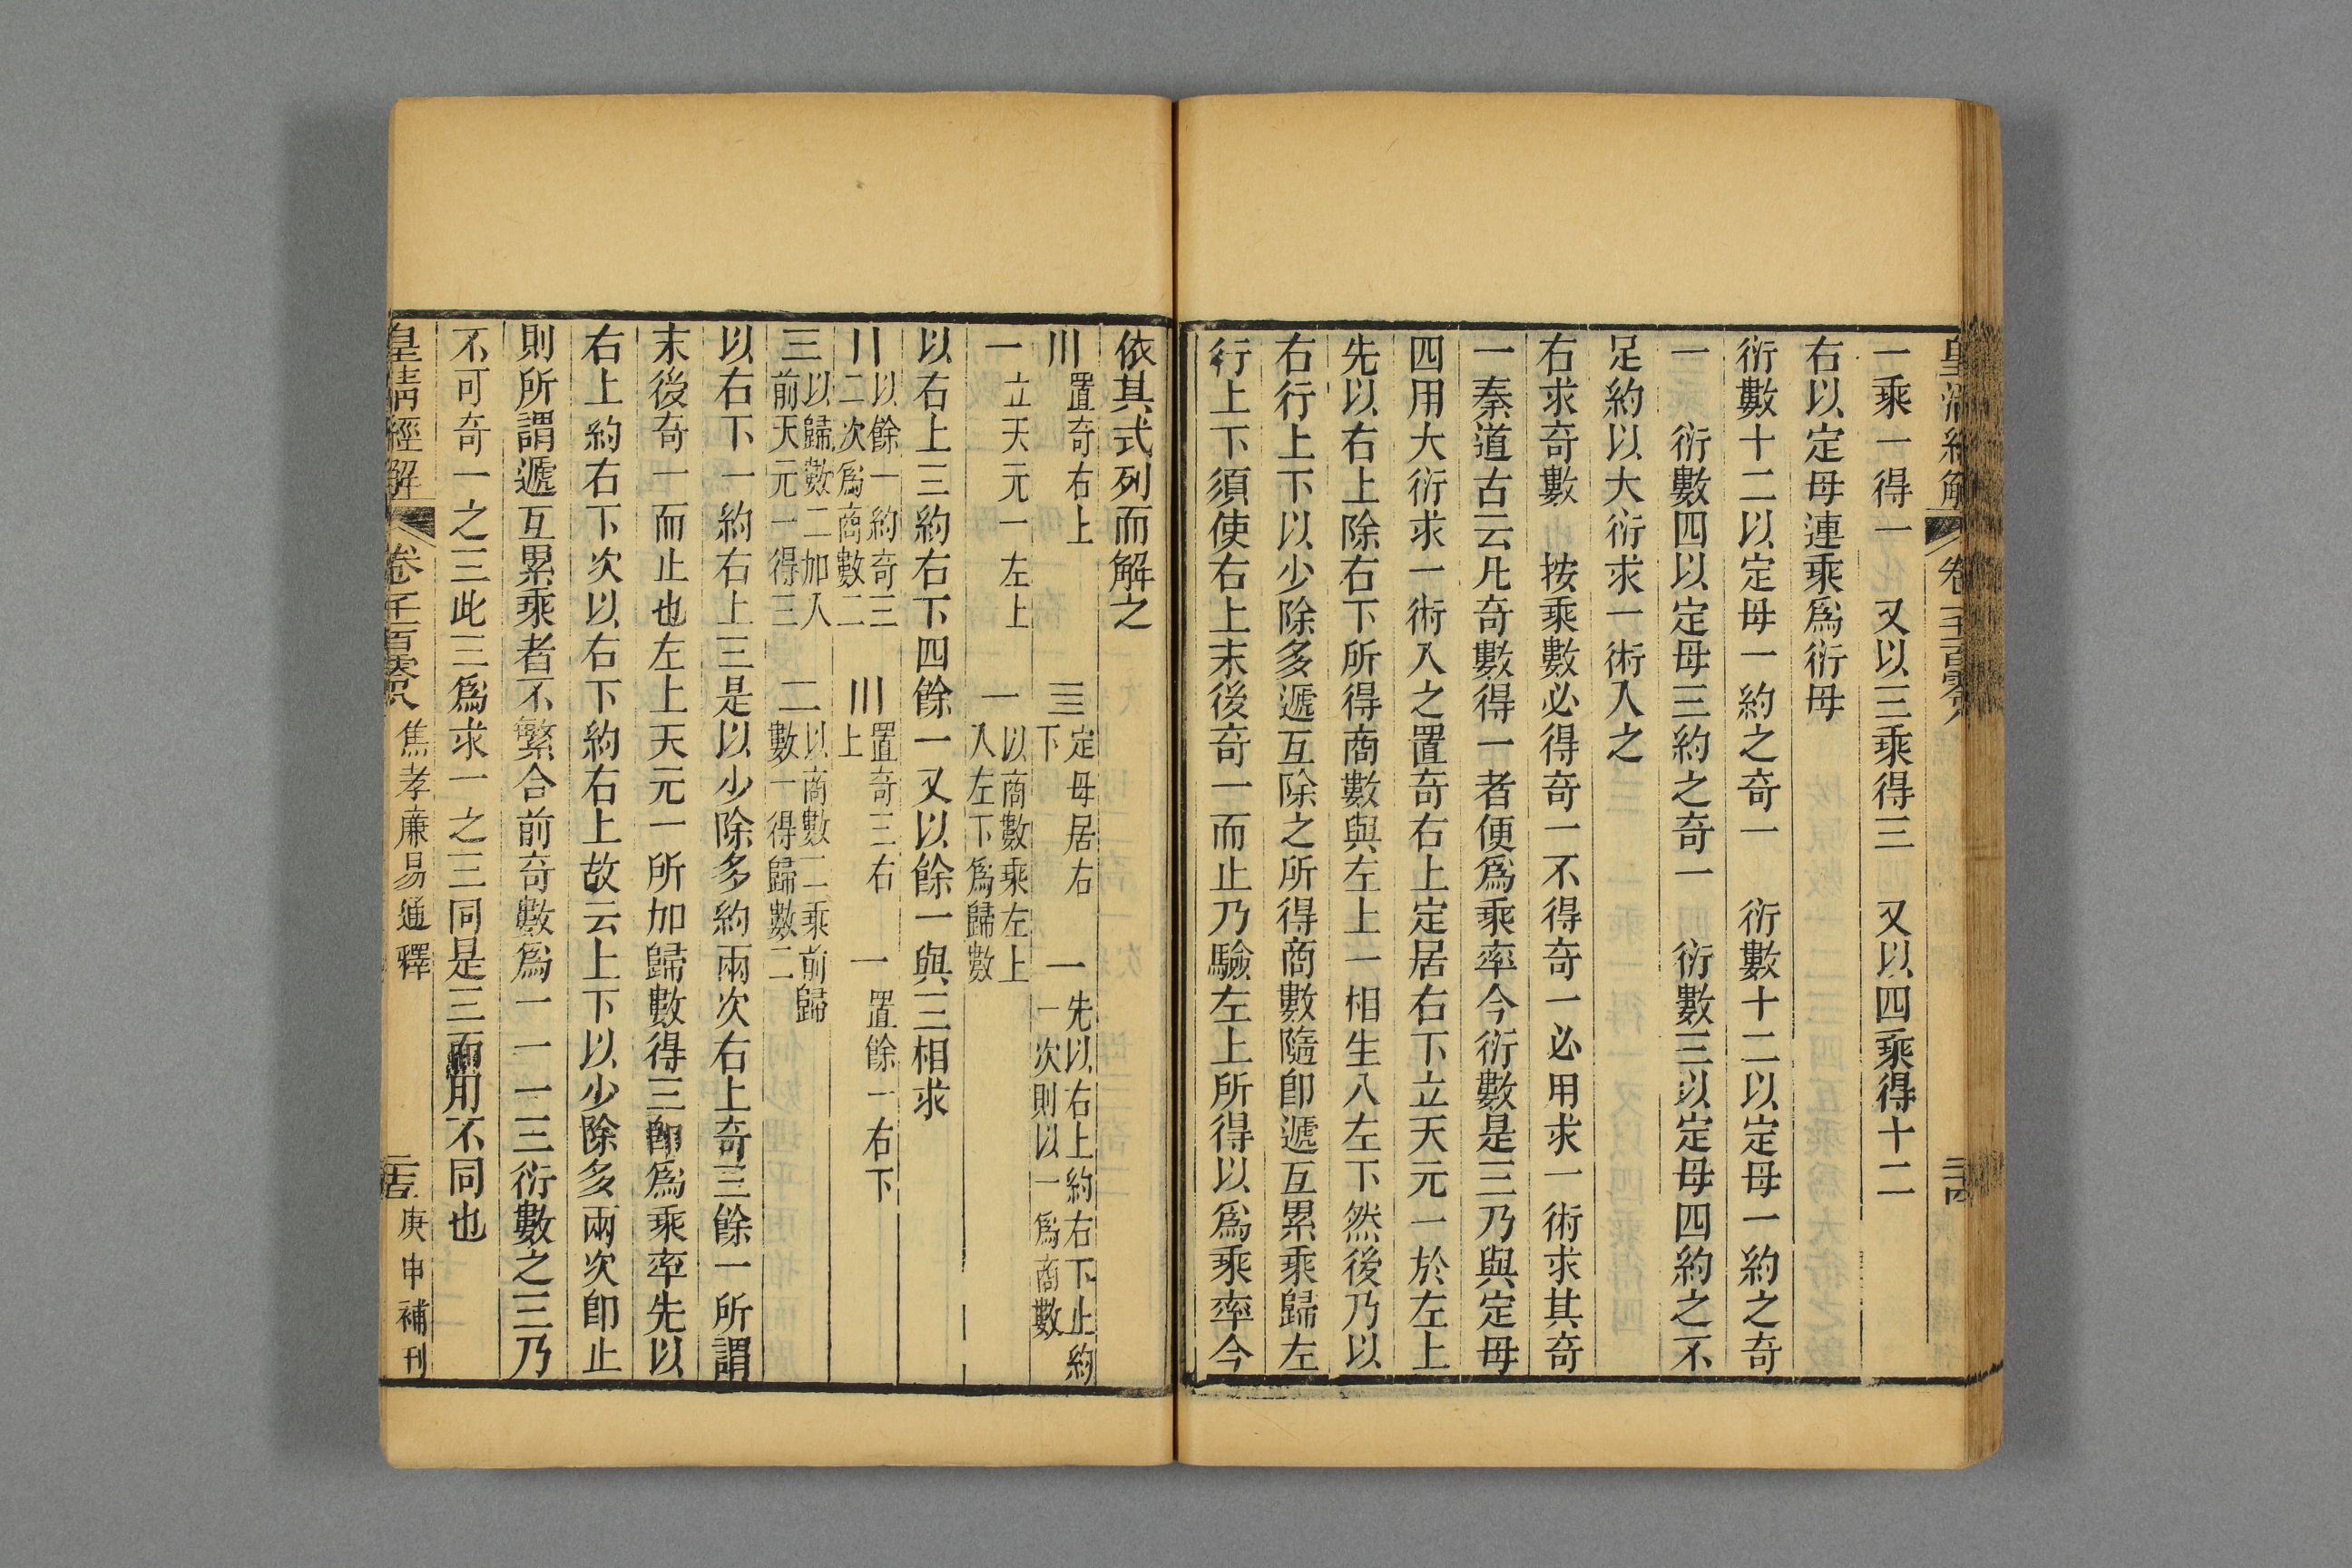 皇清經解 卷一千一百零八
一乘一得一 又以三乘得三 又以四乘得十二
右以定母連乘爲衍母
衍數十二以定母一約之奇一 衍數十二以定母一約之奇
一 衍數四以定母三約之奇一 衍數三以定母四約之不
足約以大衍求一術入之
右求奇數 按乘數必得奇一不得奇一必用求一術求其奇
一秦道古云凡奇數得一者便爲乘率今衍數是三乃與定母
四用大衍求一術入之置奇右上定居右下立天元一於左上
先以右上除右下所得商數與左上一相生入左下然後乃以
右行上下以少除多遞互除之所得商數隨卽遞互累乘歸左
行上下須使右上末後奇一而止乃驗左上所得以爲乘率今
依其式列而解之
〣 置奇右上 三 定母居右下 一 先以右上約右下止約一次則以一爲商數
一 立天元一左上 一 以商數乘左上入左下爲歸數
以右上三約右下四餘一又以餘一與三相求
〢 以餘一約奇三二次爲商數二 〣 置奇三右上 一 置餘一右下
三 以歸數二加入前天元一得三 二 以商數二乘前歸數一得歸數二
以右下一約右上三是以少除多約兩次右上奇三餘一所謂
末後奇一而止也左上天元一所加歸數得三卽爲乘率先以
右上約右下次以右下約右上故云上下以少除多兩次卽止
則所謂遞互累乘者不繁合前奇數爲一一一三衍數之三乃
不可奇一之三此三爲求一之三同是三而用不同也
皇清經解 卷千百零八 焦孝廉易通釋 庚申補刊